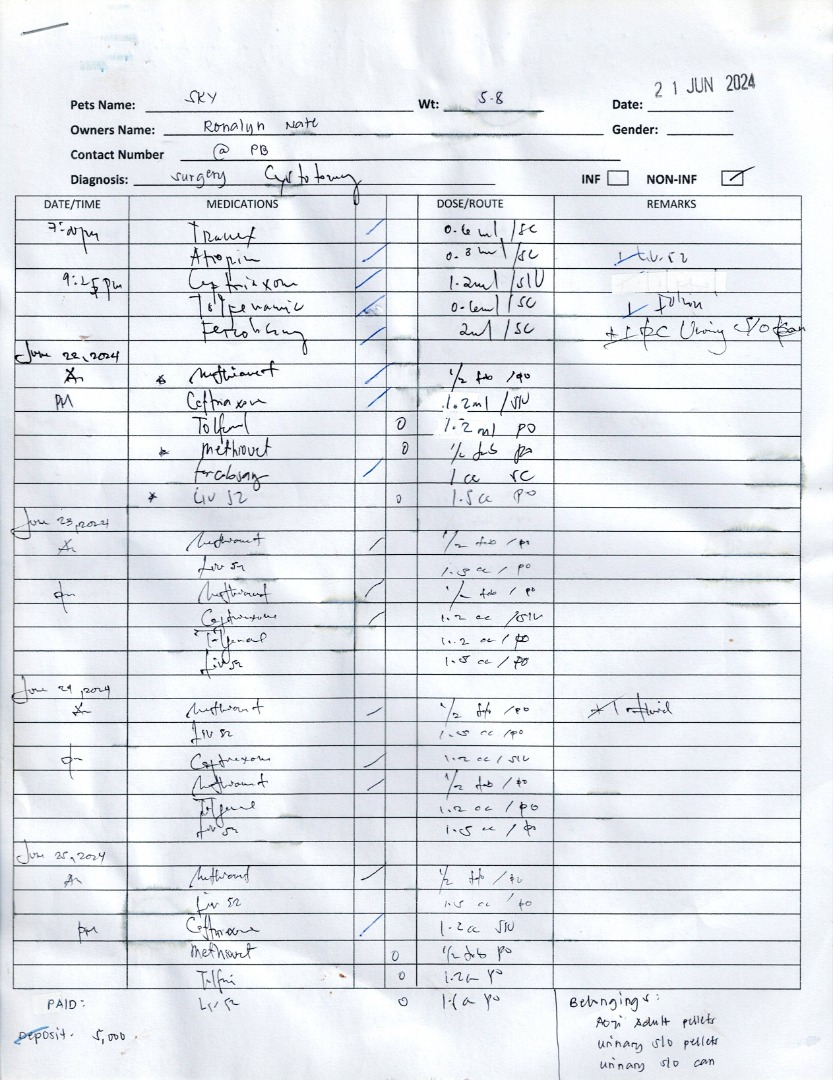 21 JUN 2024
Pets Name: SKY Wt: 5.8 Date:
Owners Name: Ronalyn Nate Gender:
Contact Number @ PB
Diagnosis: surgery Cystotomy INF NON-INF
DATE/TIME MEDICATIONS DOSE/ROUTE REMARKS
Tranex 0.6 ml / SC
Atropin 0.3 ml / SC Liv. 52
9:25 pm Ceftriaxone 1.2ml / SIV
Tolfenamic 0.6ml / SC
2ml / SC Urinary S/O
June 22, 2024
Am * Methiovet 1/2 tab / po
PM Ceftriaxone 1.2ml / SIV
Tolfenol 0 1.2 ml PO
* Methiovet 0 1/2 tab po
1 cc SC
* Liv 52 0 1.5 cc PO
June 23, 2024
Am Methiovet 1/2 tab / po
Liv 52 1.5 cc / po
pm Methiovet 1/2 tab / po
Ceftriaxone 1.2 cc / SIV
Tolfenol 1.2 cc / po
Liv 52 1.5 cc / po
June 24, 2024
Am Methiovet 1/2 tab / po
Liv 52 1.5 cc / po
pm Ceftriaxone 1.2 cc / SIV
Methiovet 1/2 tab / po
1.2 cc / po
Liv 52 1.5 cc / po
June 25, 2024
Am Methiovet 1/2 tab / po
Liv 52 1.5 cc / po
PM Ceftriaxone 1.2 cc SIV
Methiovet 0 1/2 tab po
0 po
PAID: Liv 52 0 po Belongings:
Deposit - 5,000. Aozi Adult pellets
urinary s/o pellets
urinary s/o can